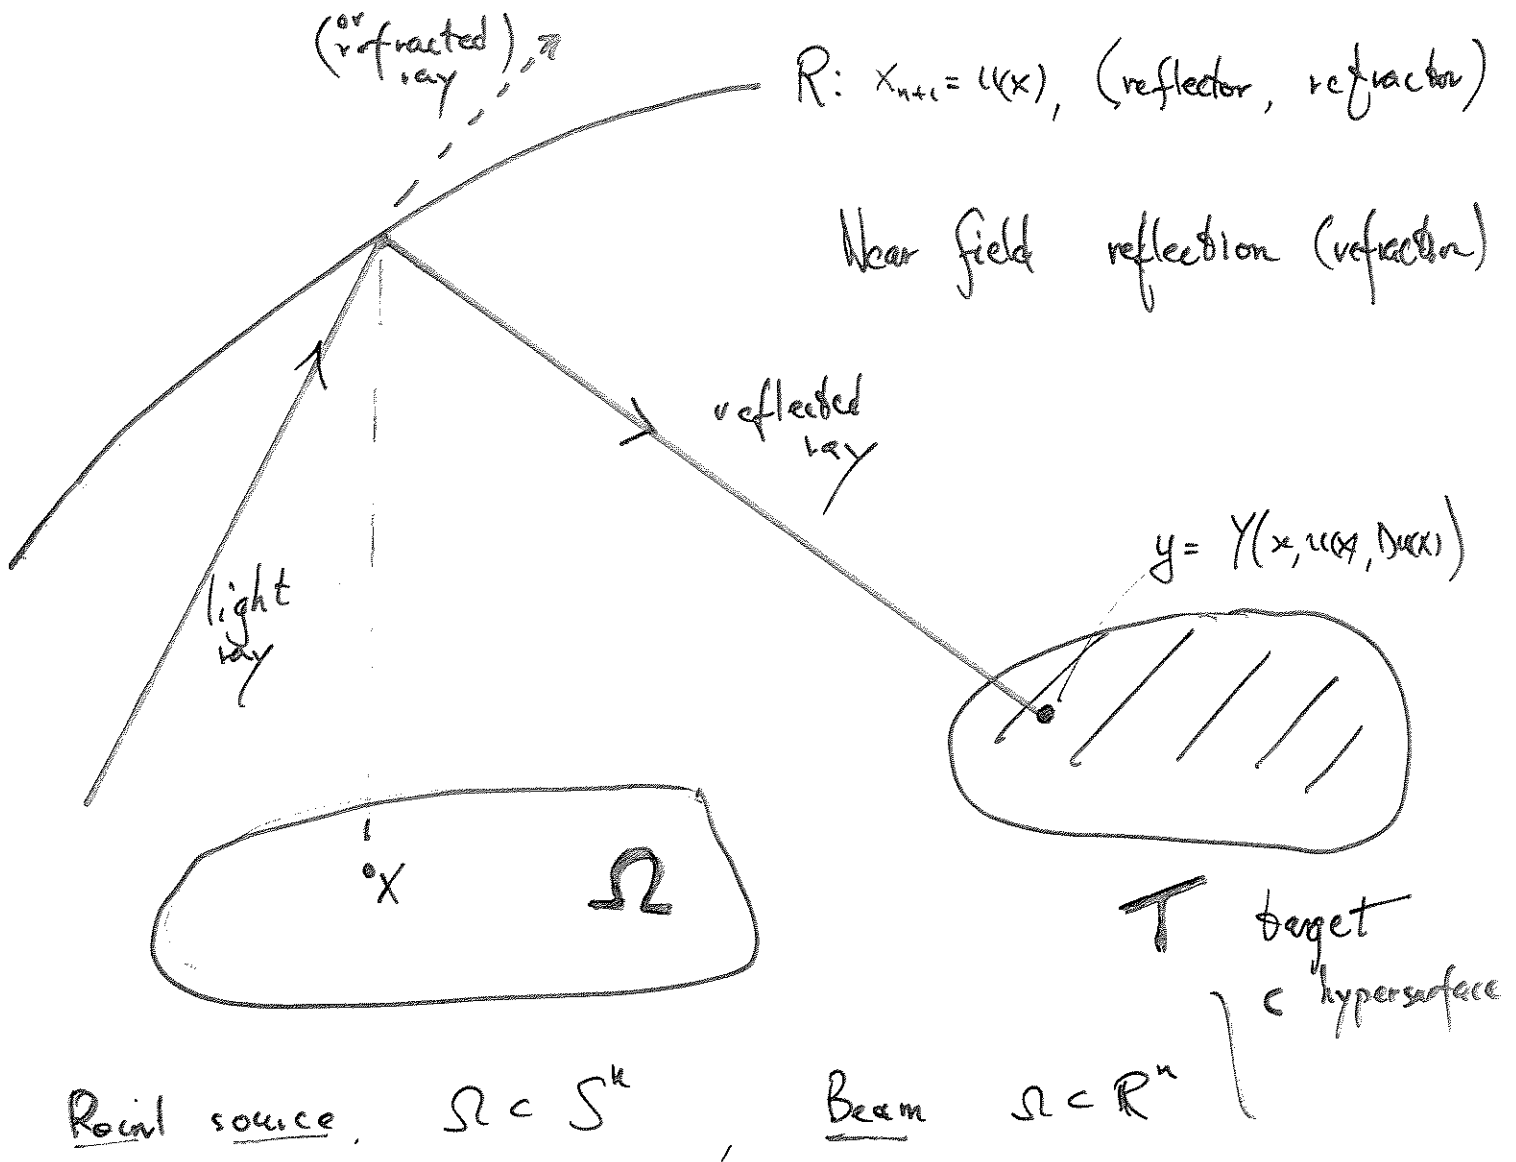 (or
refracted)
ray
R: x_{n+1} = u(x), (reflector, refractor)
Near field reflection (refraction)
reflected
ray
y = Y(x, u(x), Du(x))
light
ray
x
Ω
T target
⊂ hypersurface
Point source, Ω ⊂ S^n, Beam Ω ⊂ R^n